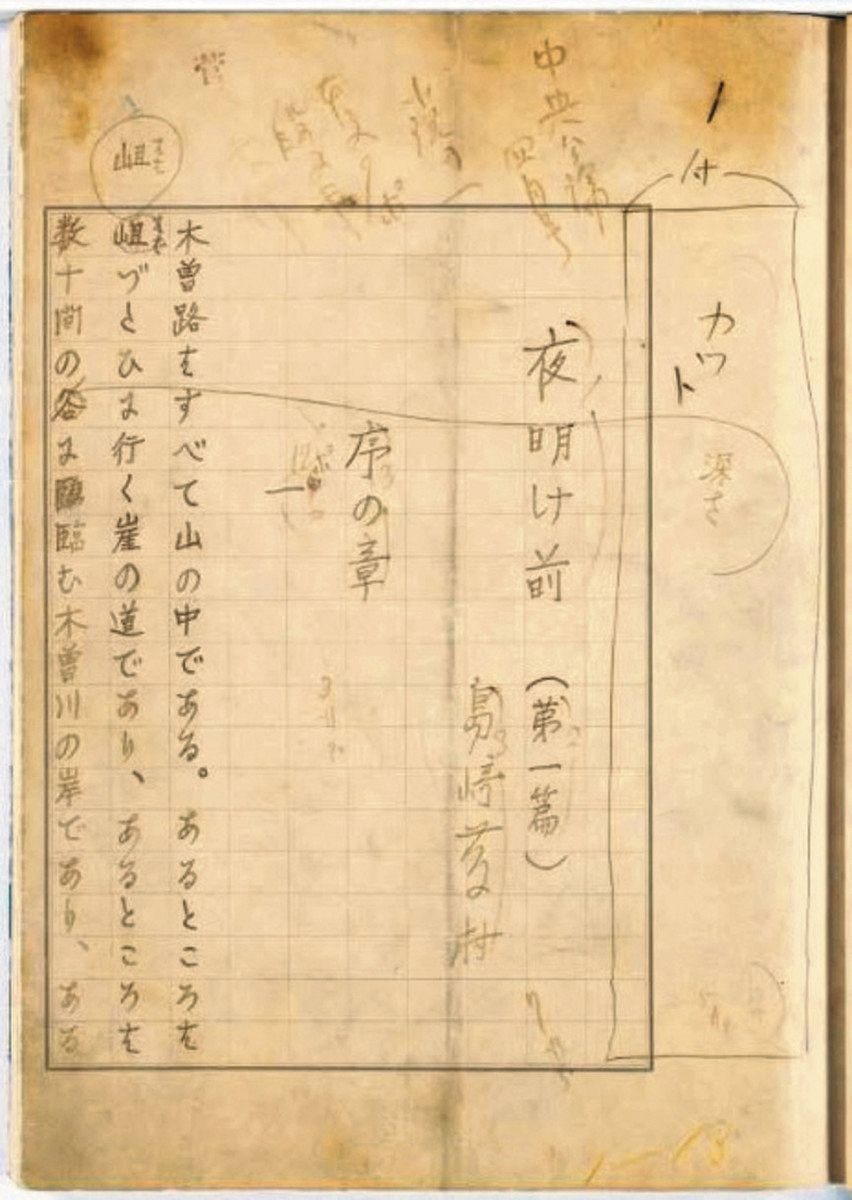 1
付
カット
深さ
中央公論
四月号
夜明け前 (第一篇)
島崎藤村
序の章
一
木曾路はすべて山の中である。あるところは
岨づたひに行く崖の道であり、あるところは
岨
数十間の谷に臨む木曾川の岸であり、ある
1—18